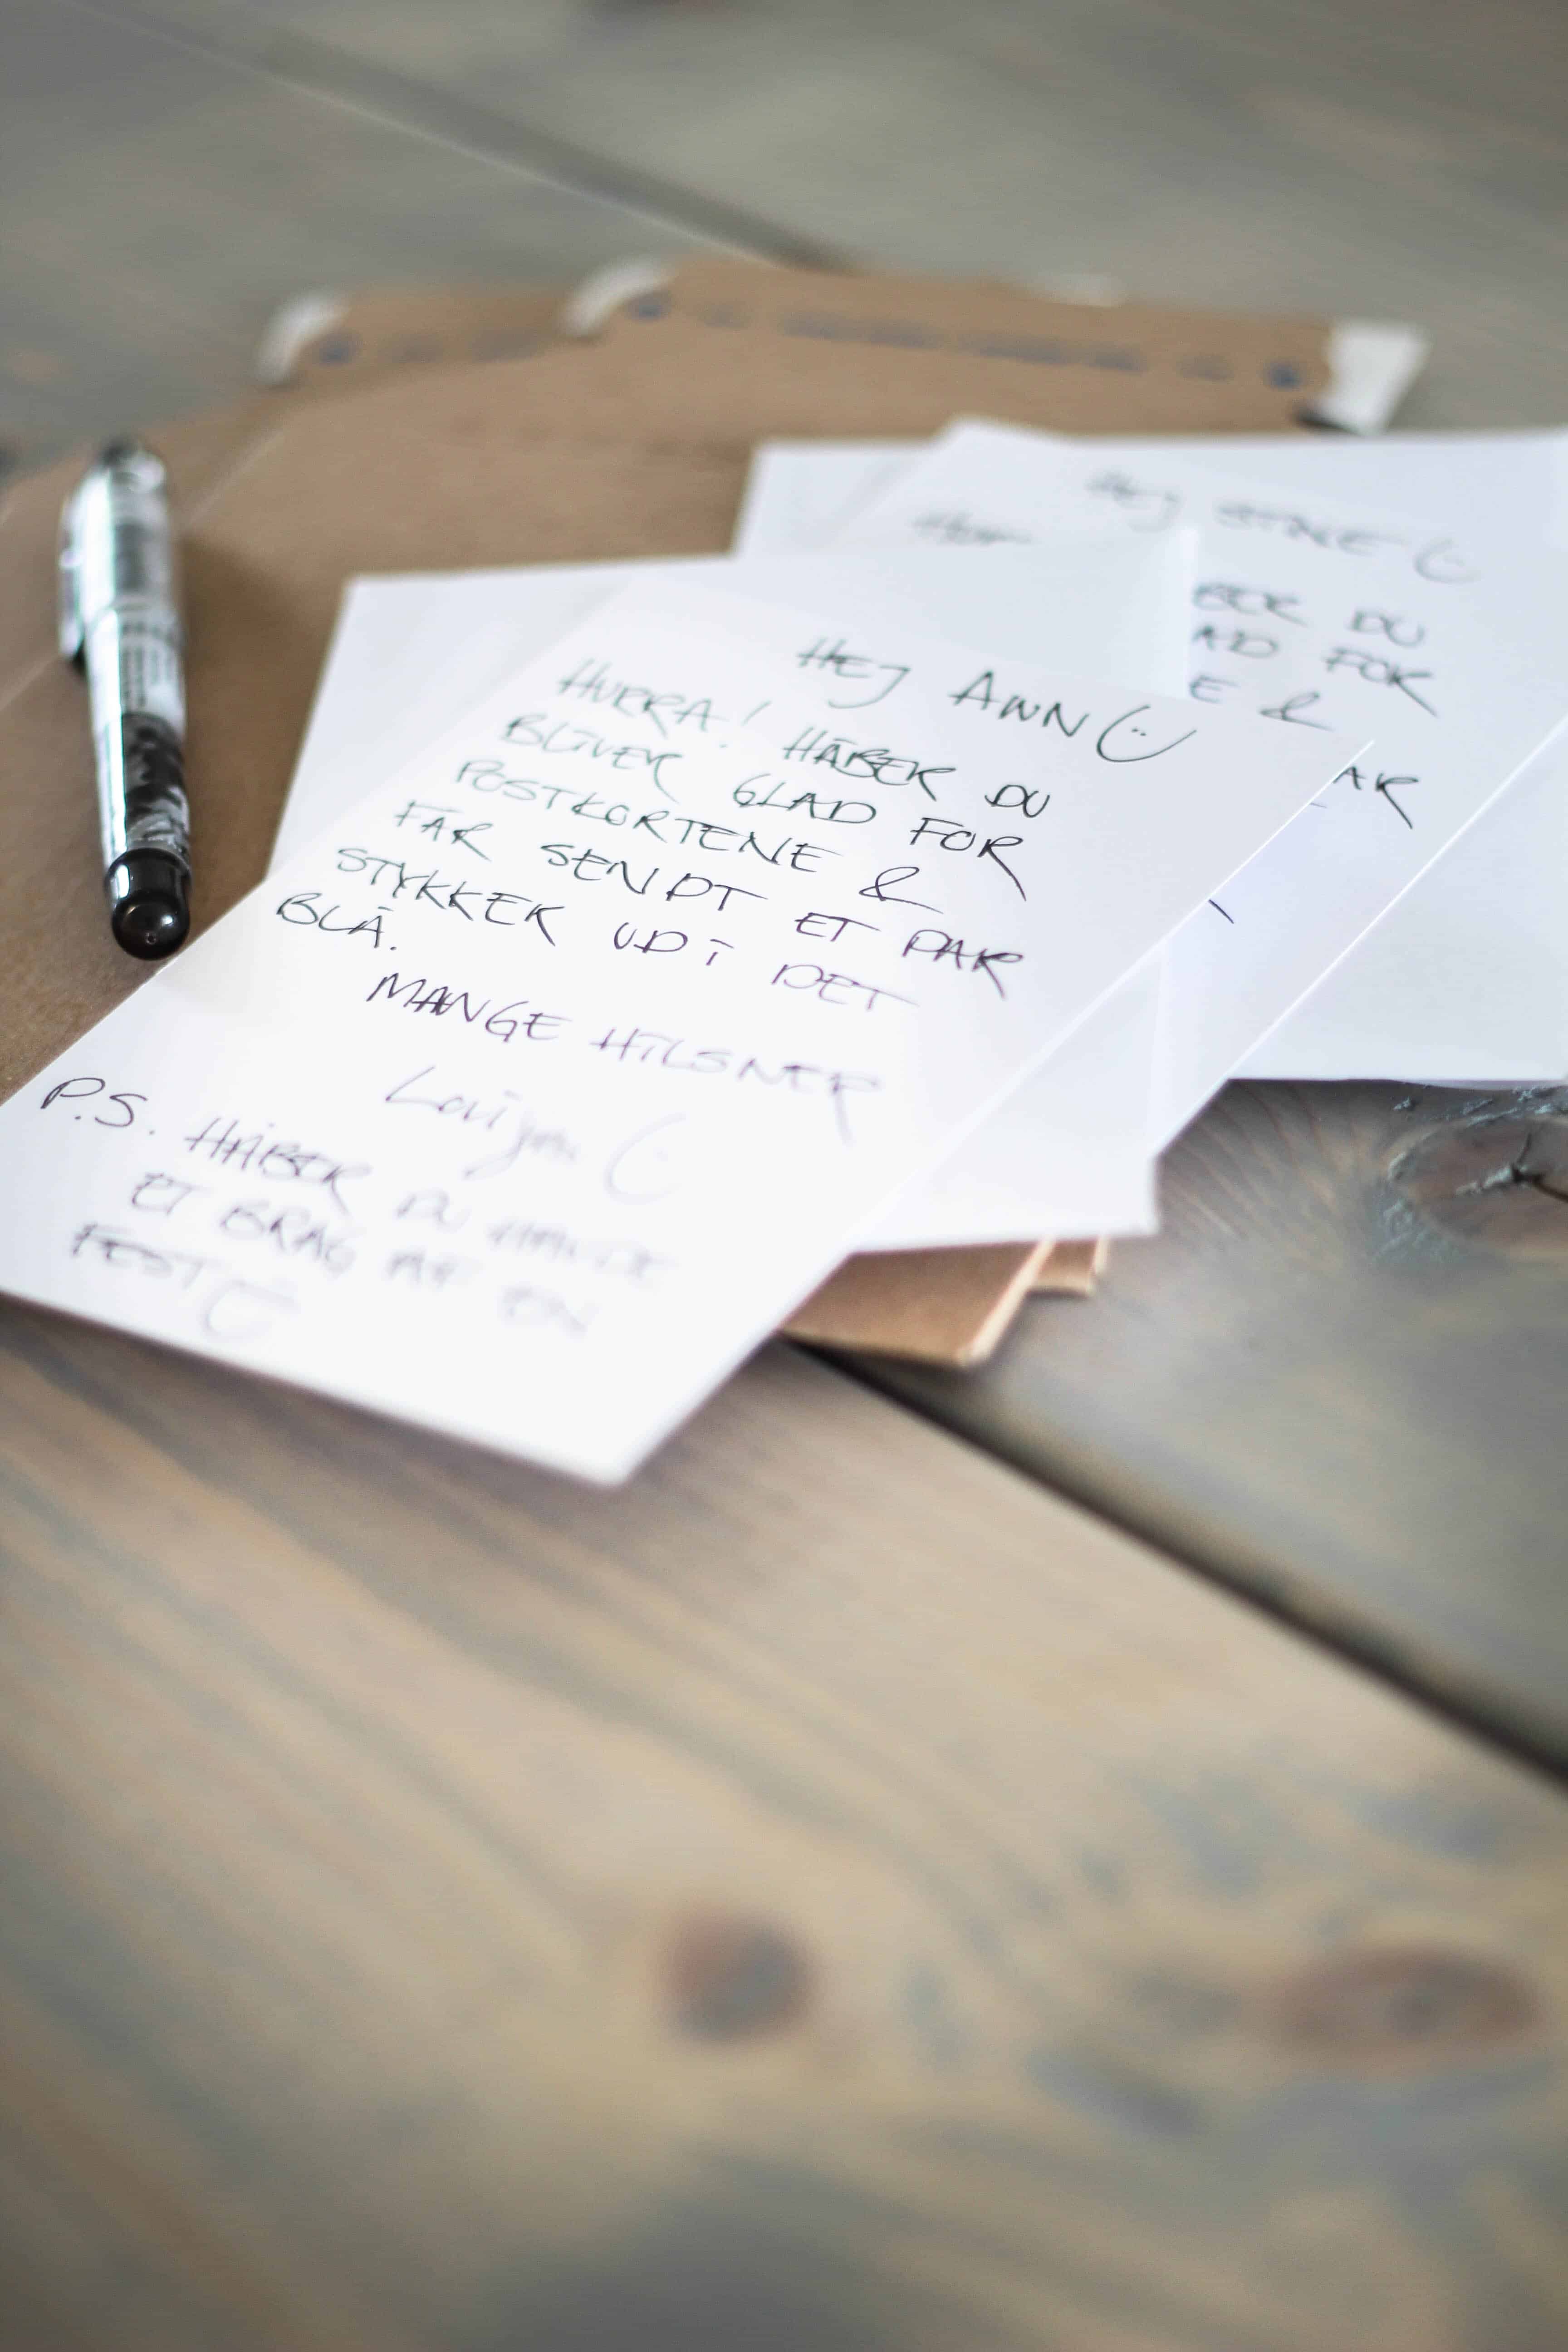 HEJ ANN
HURRA! HÅBER DU
BLIVER GLAD FOR
POSTKORTENE &
FÅR SENDT ET PAR
STYKKER UD I DET
BLÅ.
MANGE HILSNER
P.S. HÅBER DU HAVDE
ET BRAG AF EN
FEST
HEJ STINE
BER DU
AD FOR
E &
AR